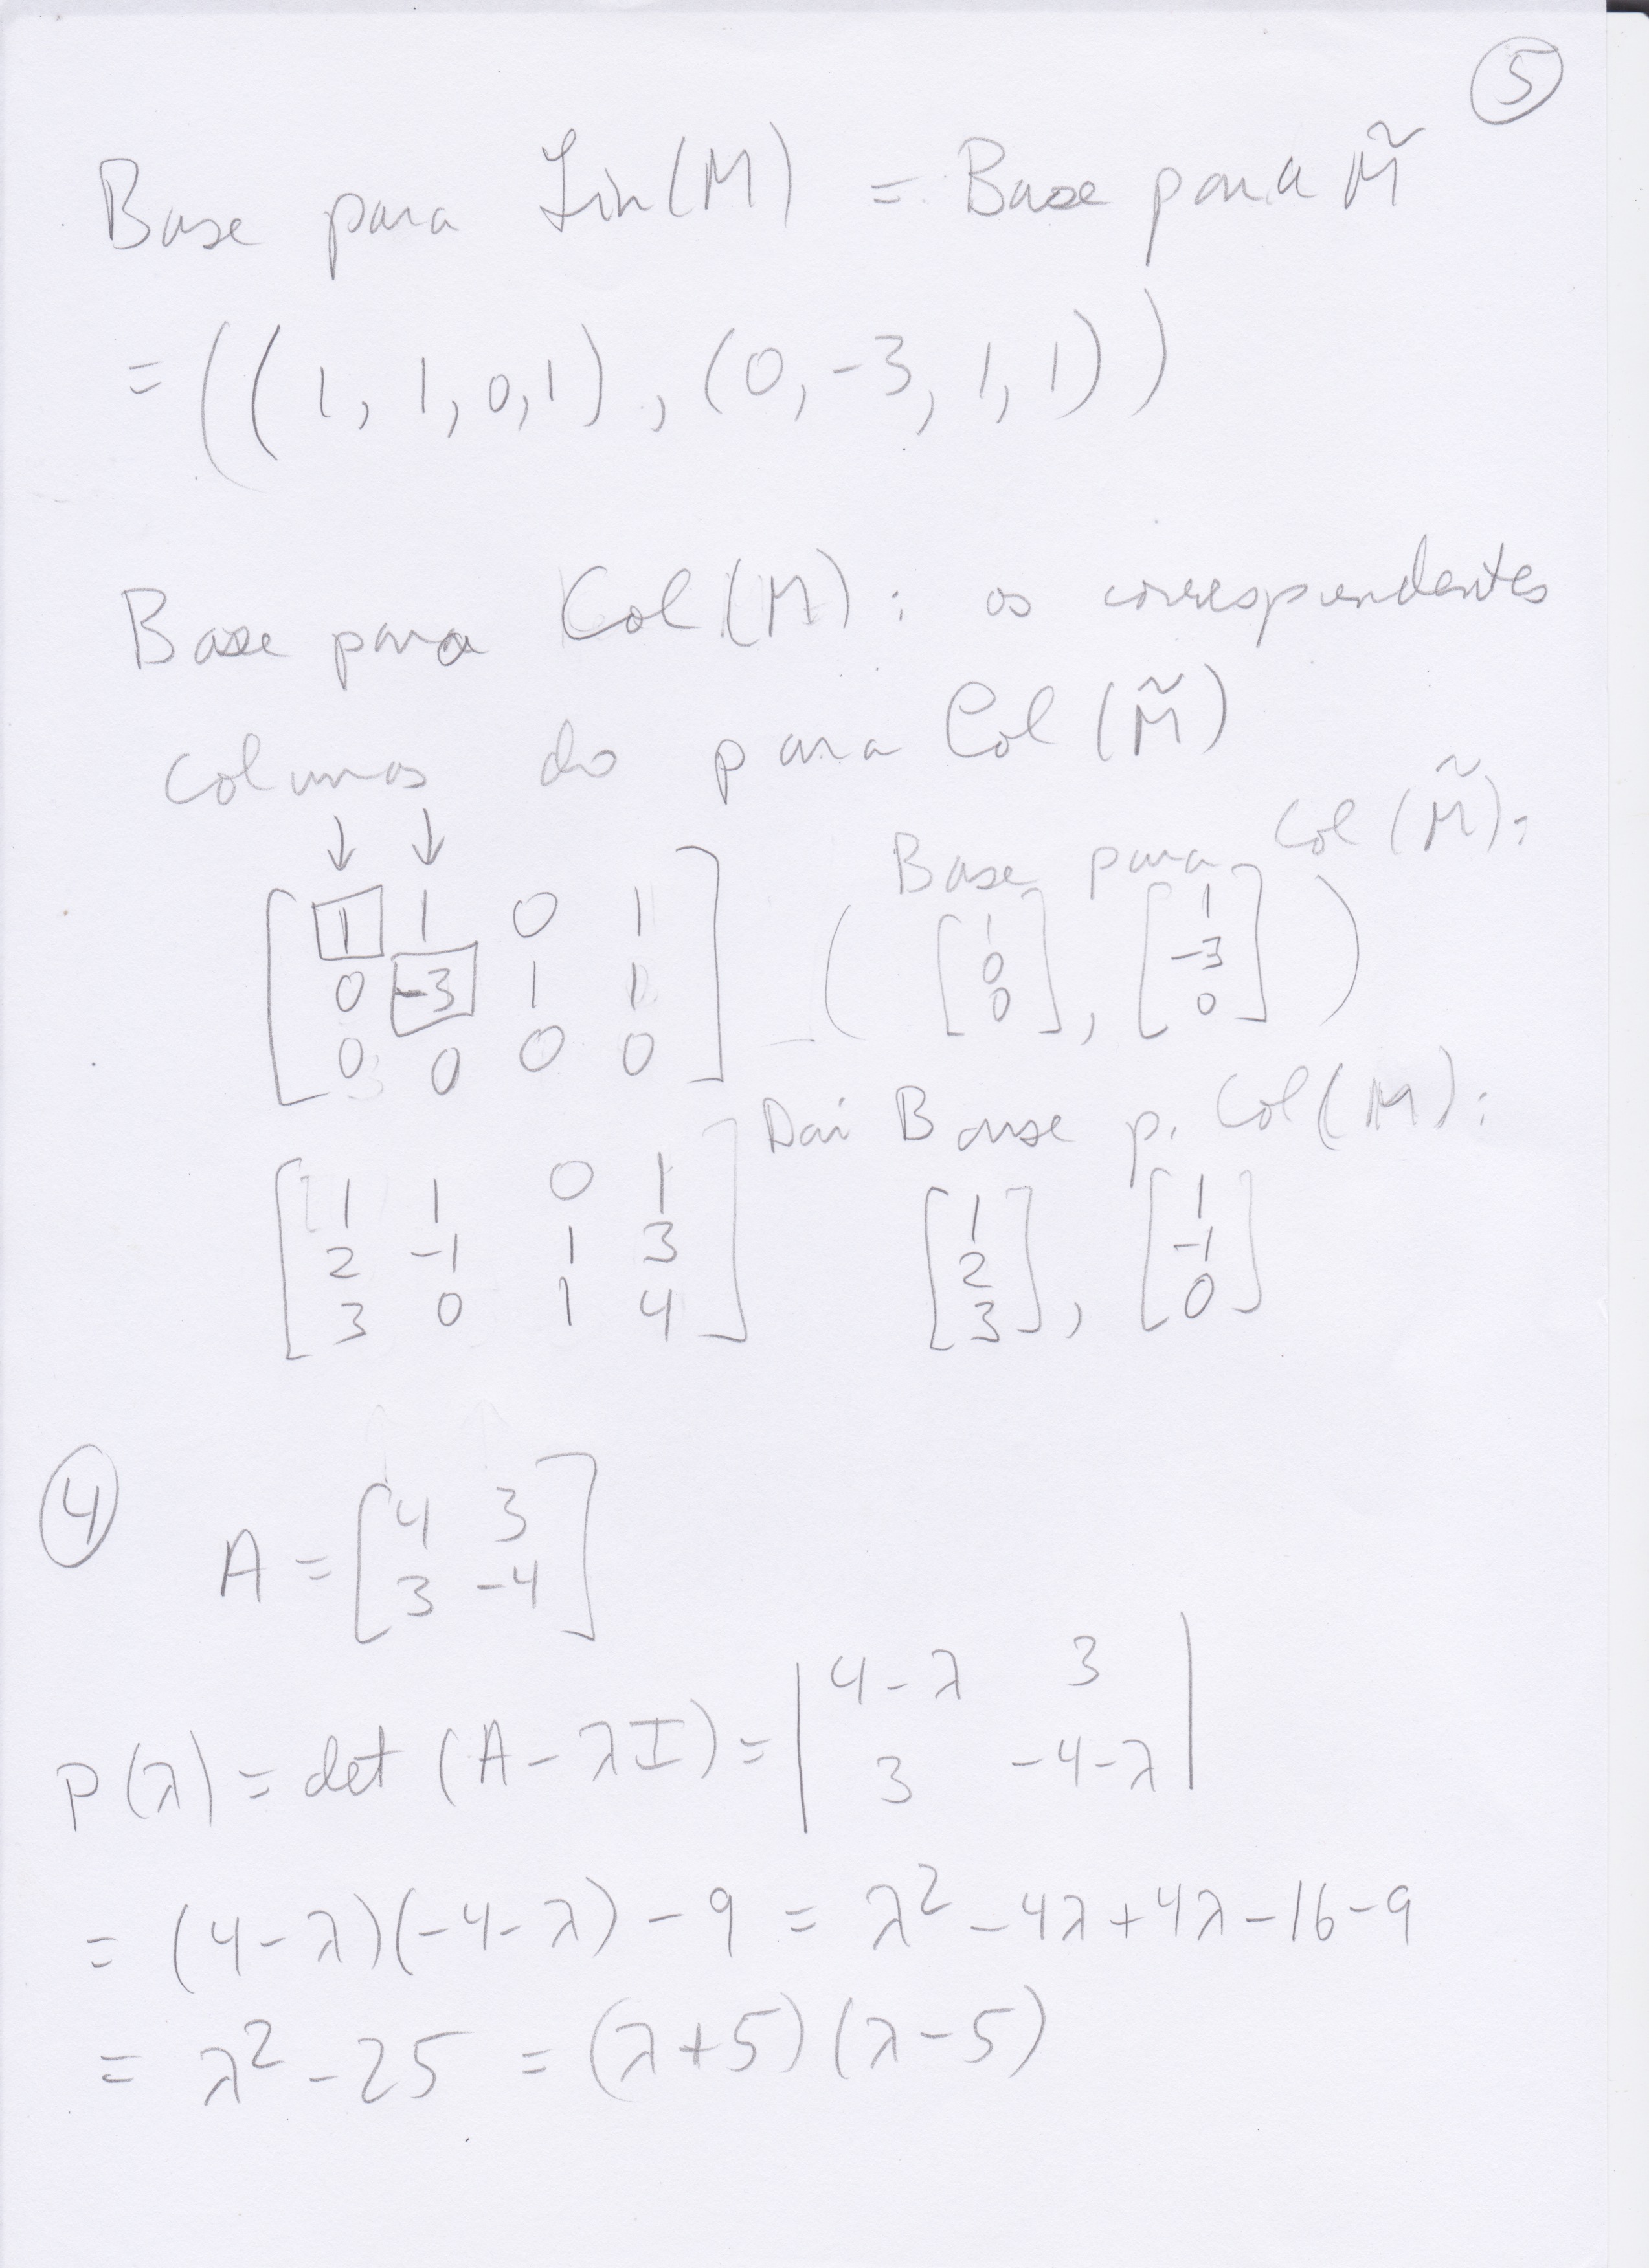 5
Base para Lin(M) = Base para M̃
= ((1, 1, 0, 1), (0, -3, 1, 1))
Base para Col(M): os correspondentes
colunas do para Col(M̃)
↓ ↓
Base para Col(M̃):
[1 1 0 1
0 -3 1 1
0 0 0 0]
([1 0 0], [1 -3 0])
Daí Base p. Col(M):
[1 1 0 1
2 -1 1 3
3 0 1 4]
[1 2 3], [1 -1 0]
4
A = [4 3
3 -4]
P(λ) = det(A - λI) = |4-λ 3
3 -4-λ|
= (4-λ)(-4-λ) - 9 = λ² - 4λ + 4λ - 16 - 9
= λ² - 25 = (λ+5)(λ-5)